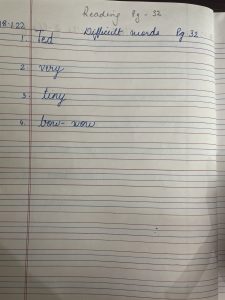 Reading Pg - 32
18.1.22 Difficult words Pg 32
1. Ted
2. very
3. tiny
4. bow-wow